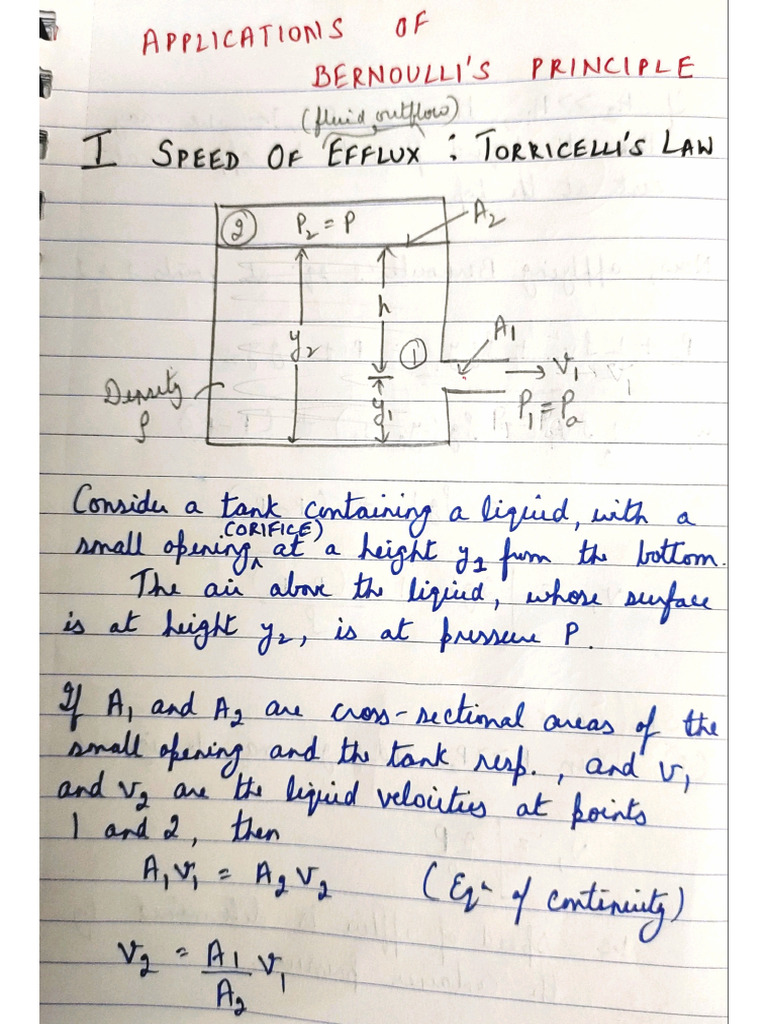 APPLICATIONS OF
BERNOULLI'S PRINCIPLE
(fluid outflow)
I SPEED OF EFFLUX : TORRICELLI'S LAW
2 P₂ = P A₂
h
y₂ 1 A₁
→ v₁
Density y₁ P₁ = Pₐ
ρ
Consider a tank containing a liquid, with a
(ORIFICE)
small opening ^ at a height y₂ from the bottom.
The air above the liquid, whose surface
is at height y₂, is at pressure P.
If A₁ and A₂ are cross-sectional areas of the
small opening and the tank resp., and v₁
and v₂ are the liquid velocities at points
1 and 2, then
A₁v₁ = A₂v₂ (Eqⁿ of continuity)
v₂ = A₁/A₂ v₁